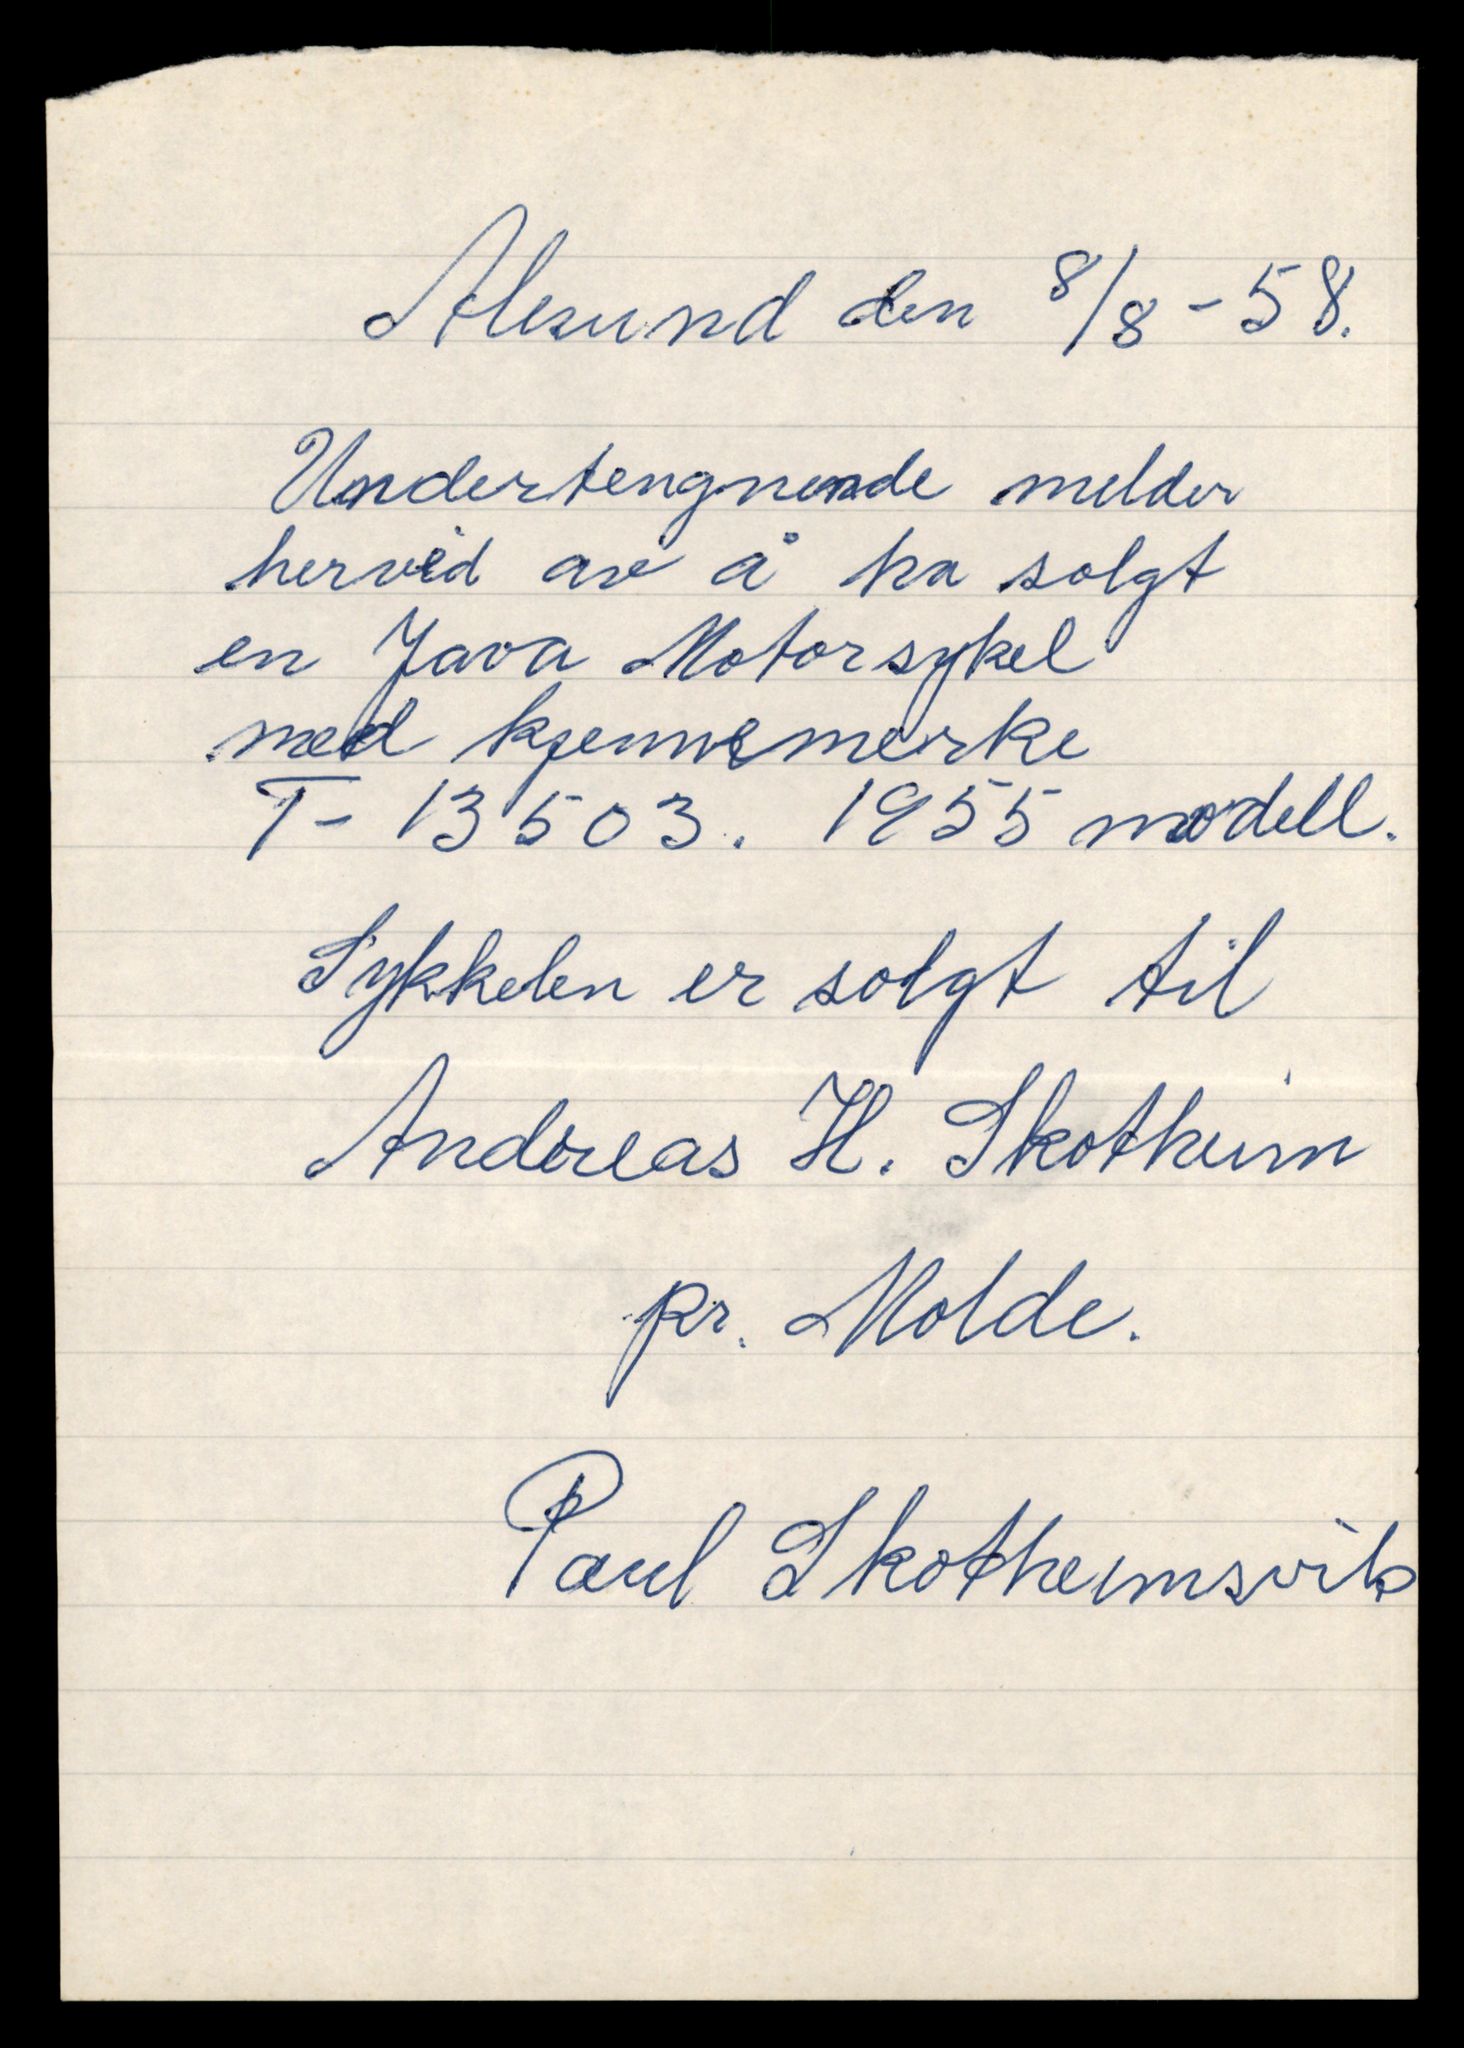 Alesund den 8/8-58.
Undertengnende melder
hervid av å ha solgt
en Java Motorsykel
med kjennemerke
T-13503. 1955 modell.
Sykkelen er solgt til
Andreas H. Skotheim
pr. Molde.
Paul Skotheimsvik